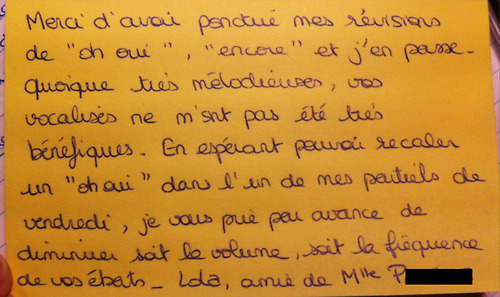 Merci d'avoir ponctué mes révisions
de "oh oui", "encore" et j'en passe.
Quoique très mélodieuses, vos
vocalises ne m'ont pas été très
bénéfiques. En espérant pouvoir recaler
un "oh oui" dans l'un de mes partiels de
vendredi, je vous prie par avance de
diminuer soit le volume, soit la fréquence
de vos ébats - Lola, amie de Mlle P